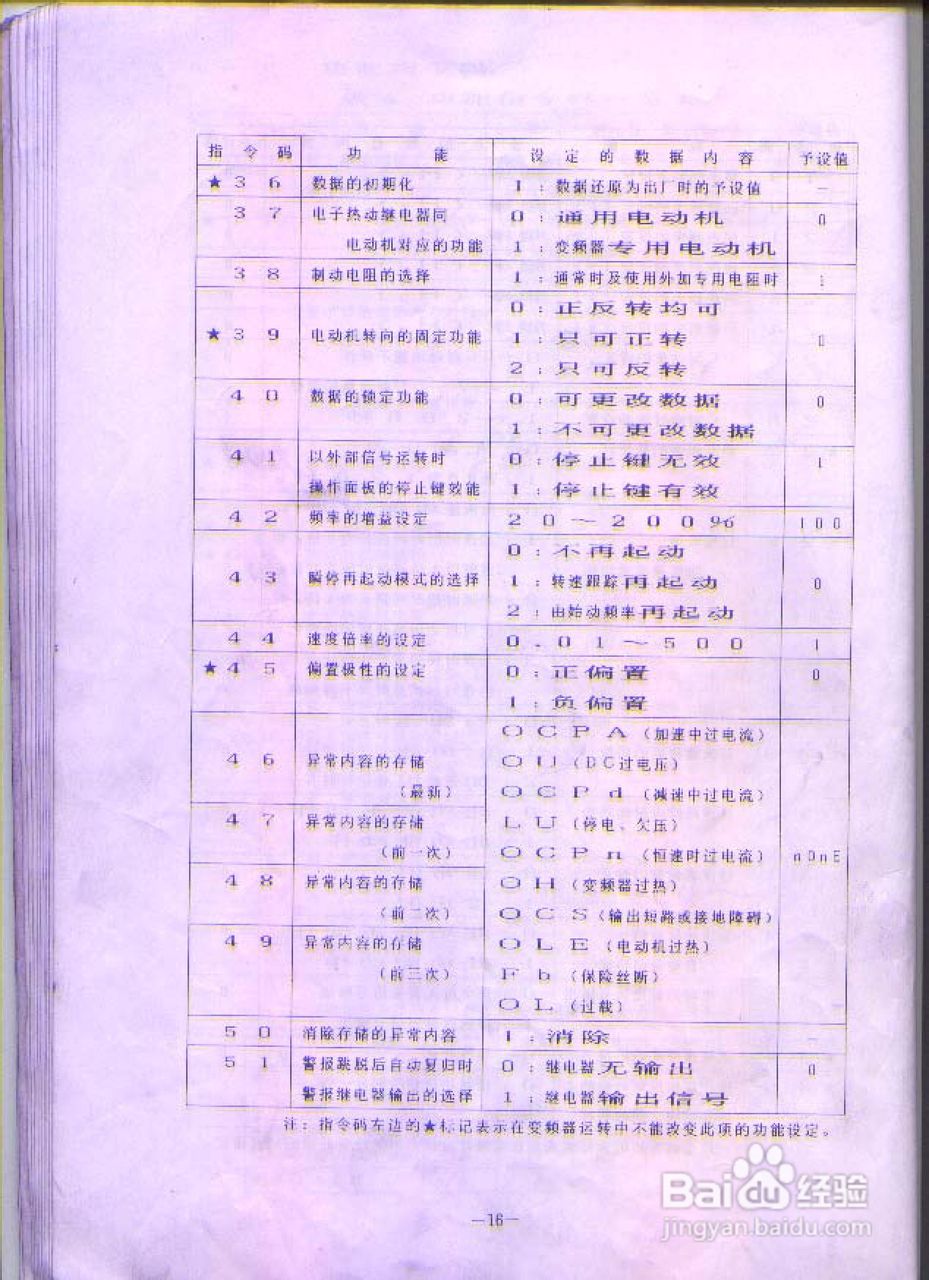 指 令 码 功 能 设 定 的 数 据 内 容 予设值
★ 3 6 数据的初期化 1 : 数据还原为出厂时的予设值 —
3 7 电子热动继电器同 0 : 通用电动机 0
电动机对应的功能 1 : 变频器专用电动机
3 8 制动电阻的选择 1 : 通常时及使用外加专用电阻时 1
0 : 正反转均可
★ 3 9 电动机转向的固定功能 1 : 只可正转 0
2 : 只可反转
4 0 数据的锁定功能 0 : 可更改数据 0
1 : 不可更改数据
4 1 以外部信号运转时 0 : 停止键无效 1
操作面板的停止键效能 1 : 停止键有效
4 2 频率的增益设定 20～200% 100
0 : 不再起动
4 3 瞬停再起动模式的选择 1 : 转速跟踪再起动 0
2 : 由始动频率再起动
4 4 速度倍率的设定 0.01～500 1
★ 4 5 偏置极性的设定 0 : 正偏置 0
1 : 负偏置
OCPA（加速中过电流）
4 6 异常内容的存储 OU（DC过电压）
（最新） OCPd（减速中过电流）
4 7 异常内容的存储 LU（停电、欠压）
（前一次） OCPn（恒速时过电流） nOnE
4 8 异常内容的存储 OH（变频器过热）
（前二次） OCS（输出短路或接地障碍）
4 9 异常内容的存储 OLE（电动机过热）
（前三次） Fb（保险丝断）
OL（过载）
5 0 消除存储的异常内容 1 : 消除 —
5 1 警报跳脱后自动复归时 0 : 继电器无输出 0
警报继电器输出的选择 1 : 继电器输出信号
注：指令码左边的★标记表示在变频器运转中不能改变此项的功能设定。
—16—
Baidu 经验
jingyan.baidu.com